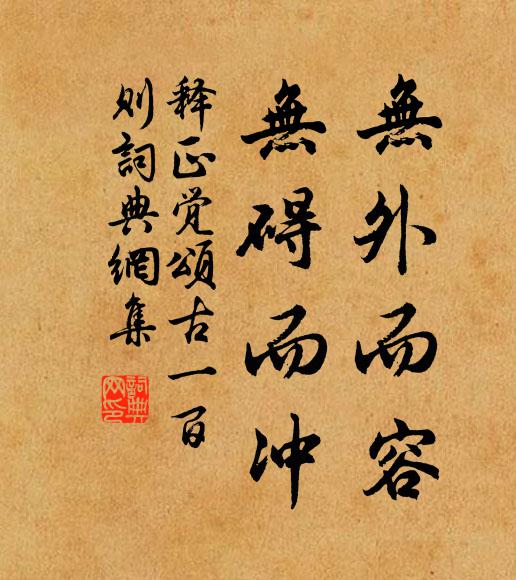 無外而容
無碍而冲
释正觉颂古一百
则詞典網集
詞典网印